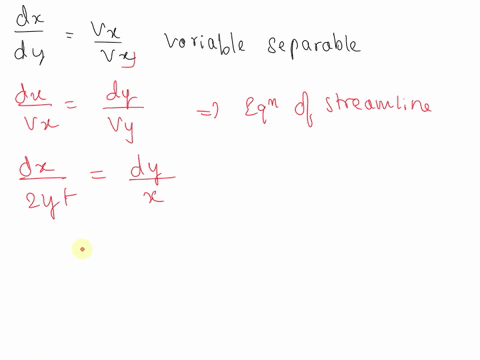 dx/dy = Vx/Vxy variable separable
dx/Vx = dy/Vy => Eqⁿ of streamline
dx/2yt = dy/x